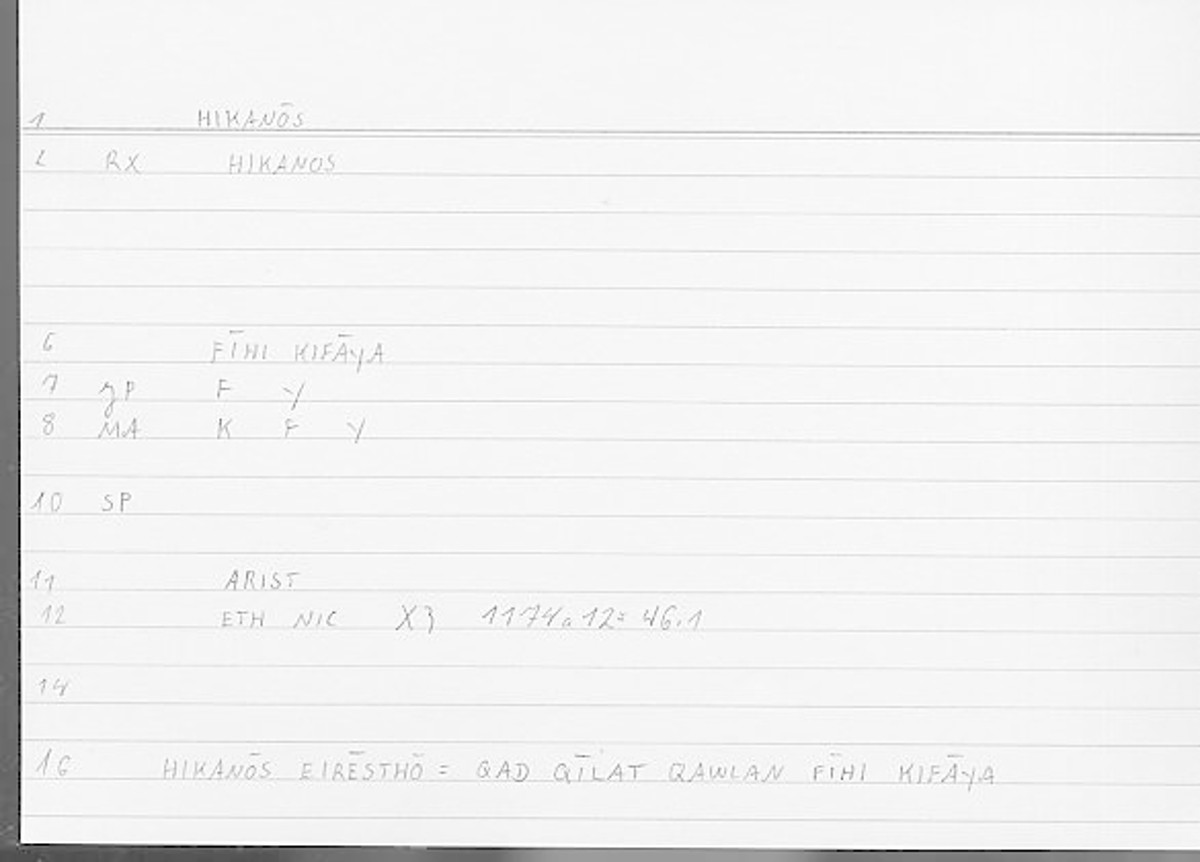 1 HIKANŌS
2 RX HIKANOS
6 FĪHI KIFĀYA
7 JP F Y
8 MA K F Y
10 SP
11 ARIST
12 ETH NIC X3 1174a12= 46.1
14
16 HIKANŌS EIRĒSTHŌ = QAD QĪLAT QAWLAN FĪHI KIFĀYA